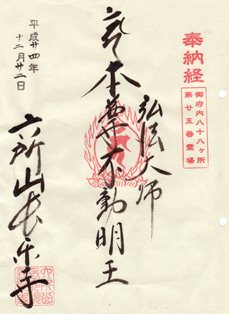 奉納経
御府内八十八ヶ所
第廿五番霊場
弘法大師
本尊不動明王
六所山長楽寺
平成廿四年
十二月廿二日